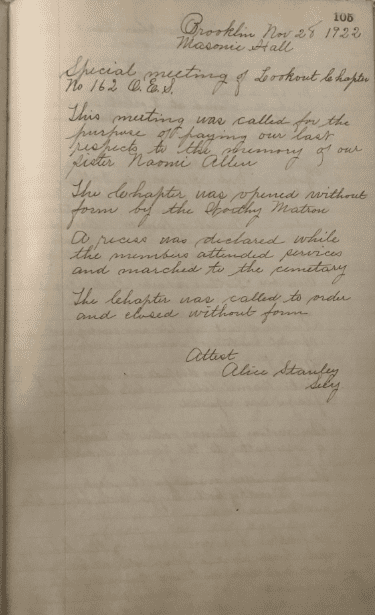 105
Brooklin Nov 28 1922
Masonic Hall
Special meeting of Lookout Chapter
No 162 O.E.S.
This meeting was called for the
purpose of paying our last
respects to the memory of our
sister Naomi Allen
The Chapter was opened without
form by the Worthy Matron
A recess was declared while
the members attended services
and marched to the cemetary
The Chapter was called to order
and closed without form
Attest
Alice Stanley
Secy